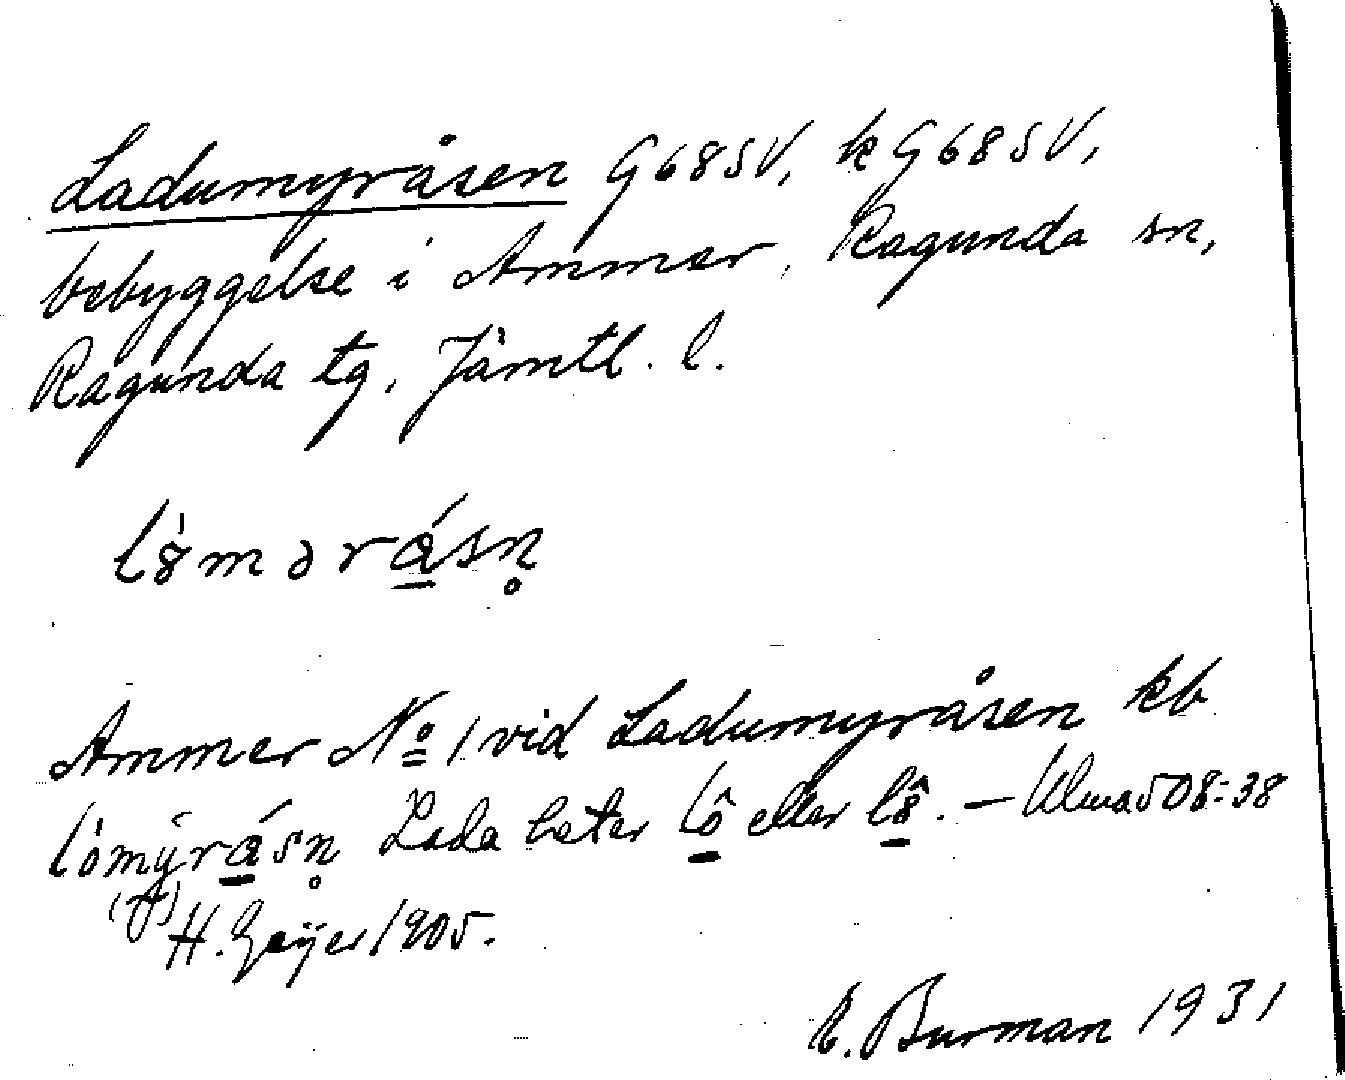 Ladumyråsen G68SV, k G68SV,
bebyggelse i Ammer, Ragunda sn,
Ragunda tg, Jämtl. l.
lòmərásn̥
Ammer No 1 vid Ladumyråsen kb
lòmyrásn̥ Lada heter lô eller lô̠. – Ulma 508:38
H. Geijer 1905.
E. Burman 1931